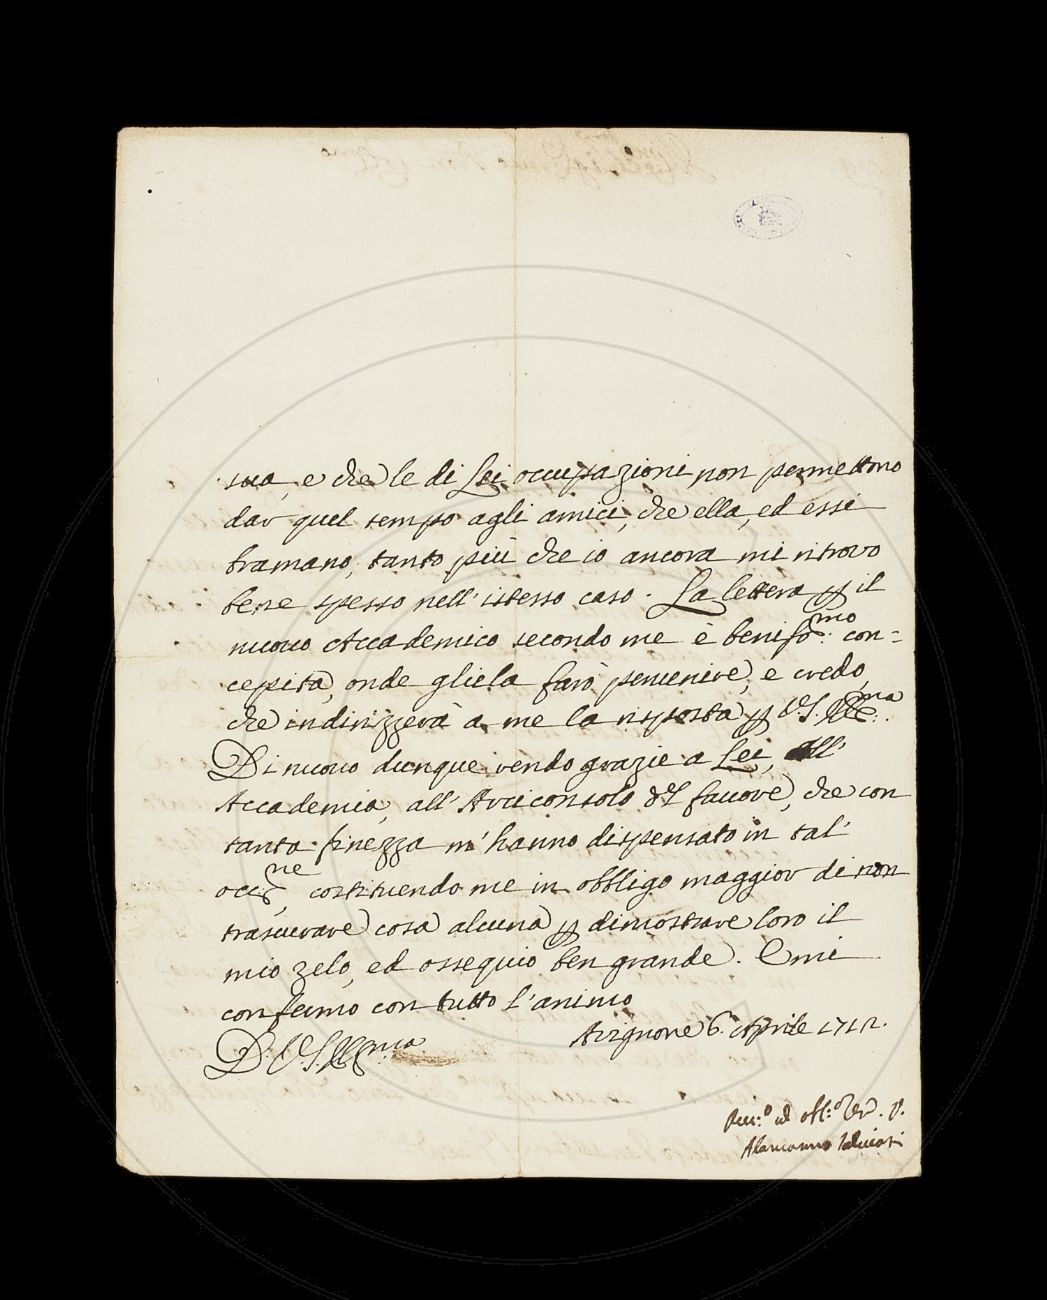 sua, e che le di Lei occupazioni non permettono
dar quel tempo agli amici, che ella, ed essi
bramano, tanto più che io ancora mi ritrovo
bene spesso nell' istesso caso. La lettera p il
nuovo Accademico secondo me è benifs.mo con=
cepita, onde gliela farò pervenire, e credo,
che indirizzerà a me la risposta p V.S. Ill.ma
Di nuovo dunque rendo grazie a Lei, all'
Accademia, all' Arciconsolo del favore, che con
tanta finezza m' hanno dispensato in tal'
occ.ne, costituendo me in obbligo maggior di non
trascurare cosa alcuna p dimostrare loro il
mio zelo, ed ossequio ben grande. E mi
confermo con tutto l' animo
Avignone 6. Aprile 1712.
D. V.S. Ill.ma
Alamanno Salviati